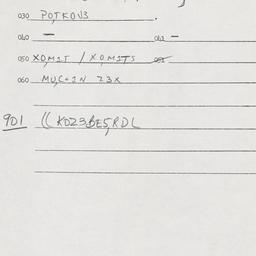 030 POTKOV3.
040 — 041 —
050 XOM1T / XOM1TS 051
060 MUC+1N 23X
901 ((KOZ3BES,RDL